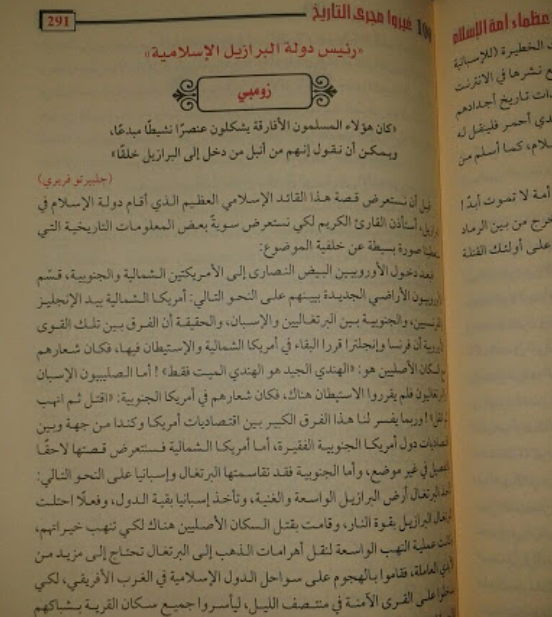 291
100 غيروا مجرى التاريخ
«رئيس دولة البرازيل الإسلامية»
زومبي
«كان هؤلاء المسلمون الأفارقة يشكلون عنصرًا نشيطًا مبدعًا،
ويمكن أن نقول إنهم من أنبل من دخل إلى البرازيل خلقًا»
(جلبيرتو فريري)
قبل أن نستعرض قصة هذا القائد الإسلامي العظيم الذي أقام دولة الإسلام في
أستأذن القارئ الكريم لكي نستعرض سويةً بعض المعلومات التاريخية التي
صورة بسيطة عن خلفية الموضوع:
فبعد دخول الأوروبيين البيض النصارى إلى الأمريكتين الشمالية والجنوبية، قسّم
الأراضي الجديدة بينهم على النحو التالي: أمريكا الشمالية بيد الإنجليز
والجنوبية بين البرتغاليين والإسبان، والحقيقة أن الفرق بين تلك القوى
أن فرنسا وإنجلترا قررا البقاء في أمريكا الشمالية والإستيطان فيها، فكان شعارهم
الأصليين هو: «الهندي الجيد هو الهندي الميت فقط»! أما الصليبيون الإسبان
فلم يقرروا الاستيطان هناك، فكان شعارهم في أمريكا الجنوبية: «اقتل ثم انهب
وربما يفسر لنا هذا الفرق الكبير بين اقتصاديات أمريكا وكندا من جهة وبين
دول أمريكا الجنوبية الفقيرة، أما أمريكا الشمالية فسنتعرض قصتها لاحقًا
في غير موضع، وأما الجنوبية فقد تقاسمتها البرتغال وإسبانيا على النحو التالي:
البرتغال أرض البرازيل الواسعة والغنية، وتأخذ إسبانيا بقية الدول، وفعلًا احتلت
البرازيل بقوة النار، وقامت بقتل السكان الأصليين هناك لكي تنهب خيراتهم،
عملية النهب الواسعة لنقل أهرامات الذهب إلى البرتغال تحتاج إلى مزيد من
العاملة، فقاموا بالهجوم على سواحل الدول الإسلامية في الغرب الأفريقي، لكي
على القرى الآمنة في منتصف الليل، ليأسروا جميع سكان القرية بشباكهم
عظماء أمة الإسلام
الخطيرة (للإسبانية
نشرها في الانترنت
تاريخ أجدادهم
أحمر فلينقل له
كما أسلم من
أمة لا تموت أبدًا!
من بين الرماد
على أولئك القتلة